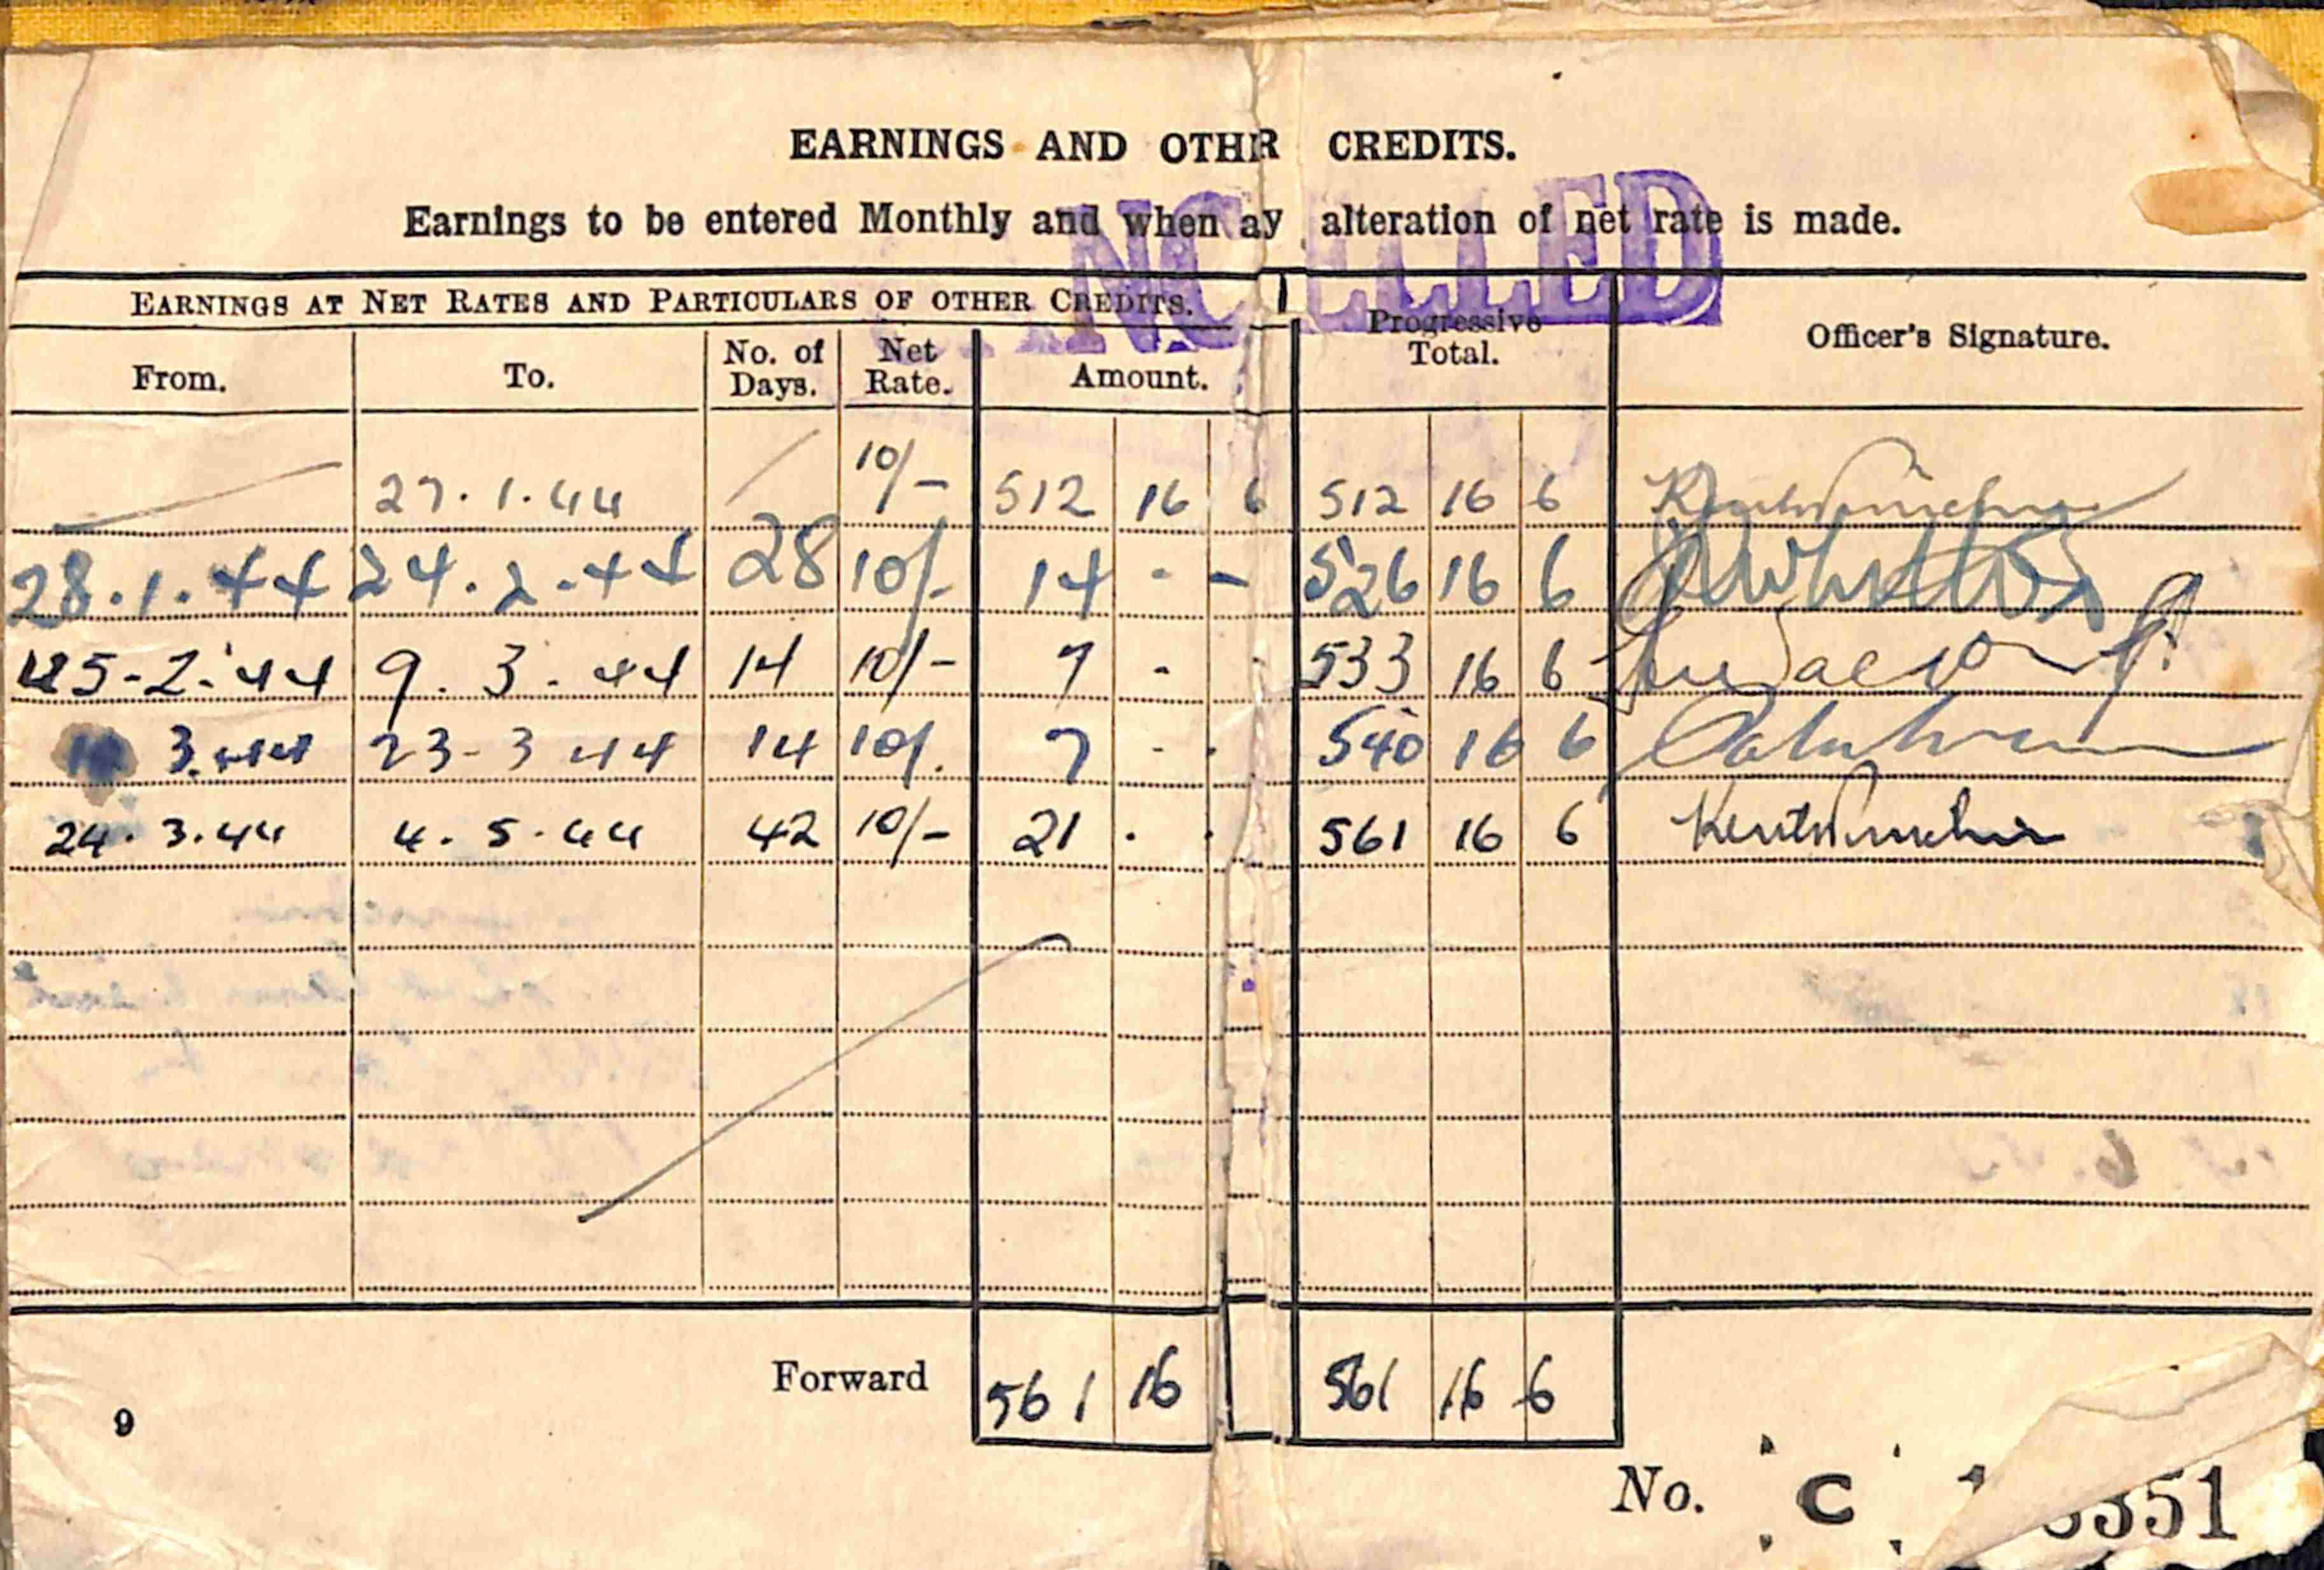 EARNINGS AND OTHR CREDITS.
Earnings to be entered Monthly and when ay alteration of net rate is made.
NC LLED
EARNINGS AT NET RATES AND PARTICULARS OF OTHER CREDITS.
Progressive Total.
Officer's Signature.
From. To. No. of Days. Net Rate. Amount.
27.1.44 10/- 512 16 6 512 16 6
28.1.44 24.2.44 28 10/- 14 - - 526 16 6
25-2-44 9.3.44 14 10/- 7 - - 533 16 6
3.44 23-3 44 14 10/. 7 - . 540 16 6
24.3.44 4.5.44 42 10/- 21 . . 561 16 6
Forward 561 16 561 16 6
9
No. C 351